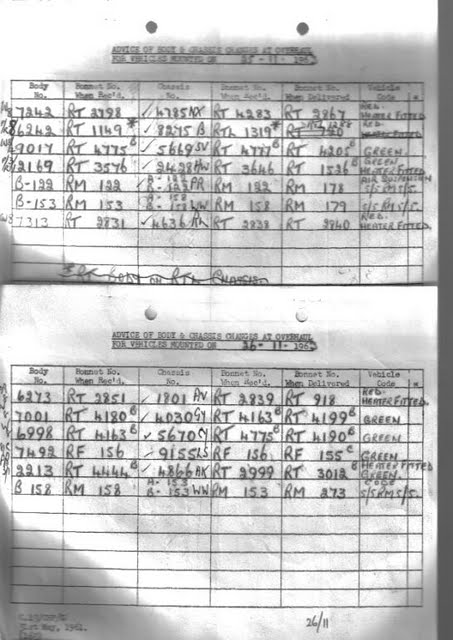 ADVICE OF BODY & CHASSIS CHANGES AT OVERHAUL
FOR VEHICLES MOUNTED ON 25-11-1963
Body No. Bonnet No. When Rec'd. Chassis No. Bonnet No. When Rec'd. Bonnet No. When Delivered Vehicle Code *
7242 RT 2798 ✓ 4785 NX RT 4282 RT 2867 RED. HEATER FITTED
6242 RT 1149* ✓ 8275 B RTL 1319* RT
9017 RT 4775 B ✓ 5669 SV RT 4777 B RT 4205 B GREEN.
2169 RT 3576 ✓ 2428 RT 3646 RT 1526 B GREEN. HEATER FITTED.
B-122 RM 122 RM 122 RM 178 AIR SUSPENSION S/S RM 5/5.
B-153 RM 153 RM 158 RM 179 S/S RM 5/5.
7313 RT 2831 ✓ 4636 RT 2838 RT 2840 RED. HEATER FITTED.
* RT BODY ON RTL CHASSIS
ADVICE OF BODY & CHASSIS CHANGES AT OVERHAUL
FOR VEHICLES MOUNTED ON 26-11-1963
Body No. Bonnet No. When Rec'd. Chassis No. Bonnet No. When Rec'd. Bonnet No. When Delivered Vehicle Code *
6273 RT 2851 ✓ 1801 AV RT 2839 RT 918 RED. HEATER FITTED.
7001 RT 4180 B ✓ 4030 GY RT 4163 B RT 4199 B GREEN
6998 RT 4163 B ✓ 5670 CY RT 4775 B RT 4190 B GREEN
7492 RF 156 ✓ 9155 LS RF 156 RF 155 C GREEN
2213 RT 4444 B ✓ 4866 AK RT 2999 RT 3012 B HEATER FITTED GREEN.
B 158 RM 158 A-153 B-153 WW RM 153 RM 273 CODE S/S RM 5/5.
31st May, 1961.
26/11